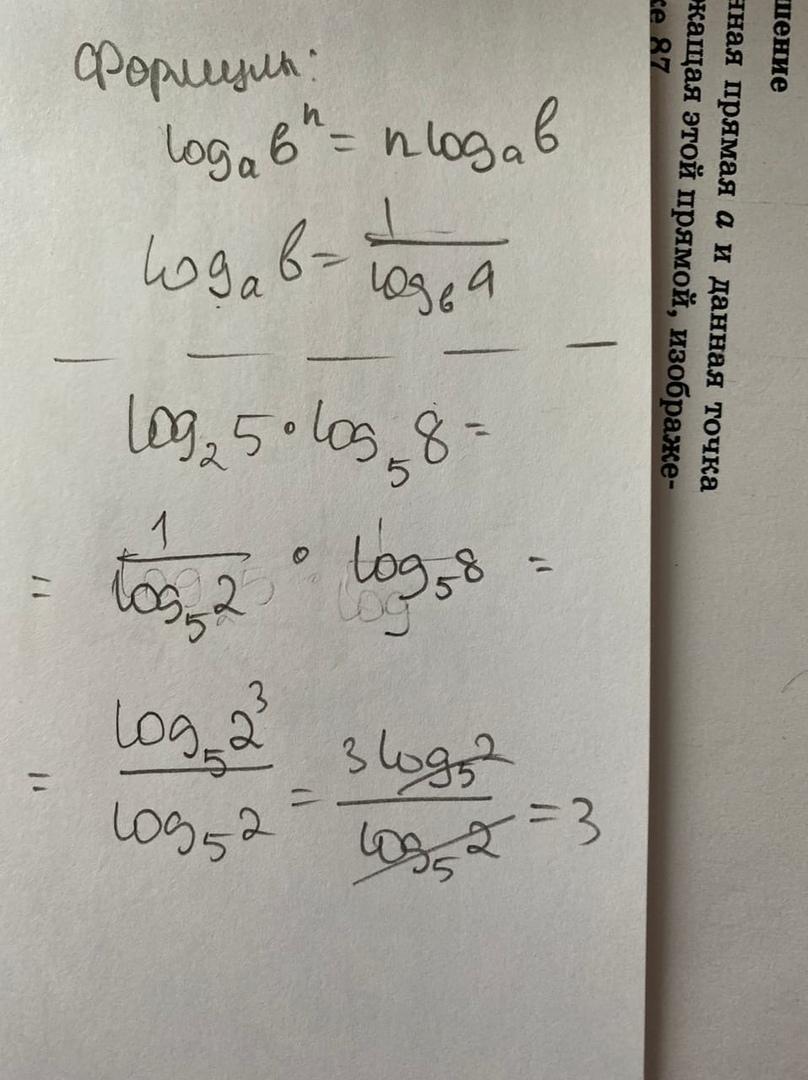 Формулы:
logₐ bⁿ = n logₐ b
logₐ b = 1 / log_b a
log₂ 5 • log₅ 8 =
= 1 / log₅ 2 • log₅ 8 =
= log₅ 2³ / log₅ 2 = 3 log₅ 2 / log₅ 2 = 3
шение
нная прямая а и данная точка
жащая этой прямой, изображе-
ке 87